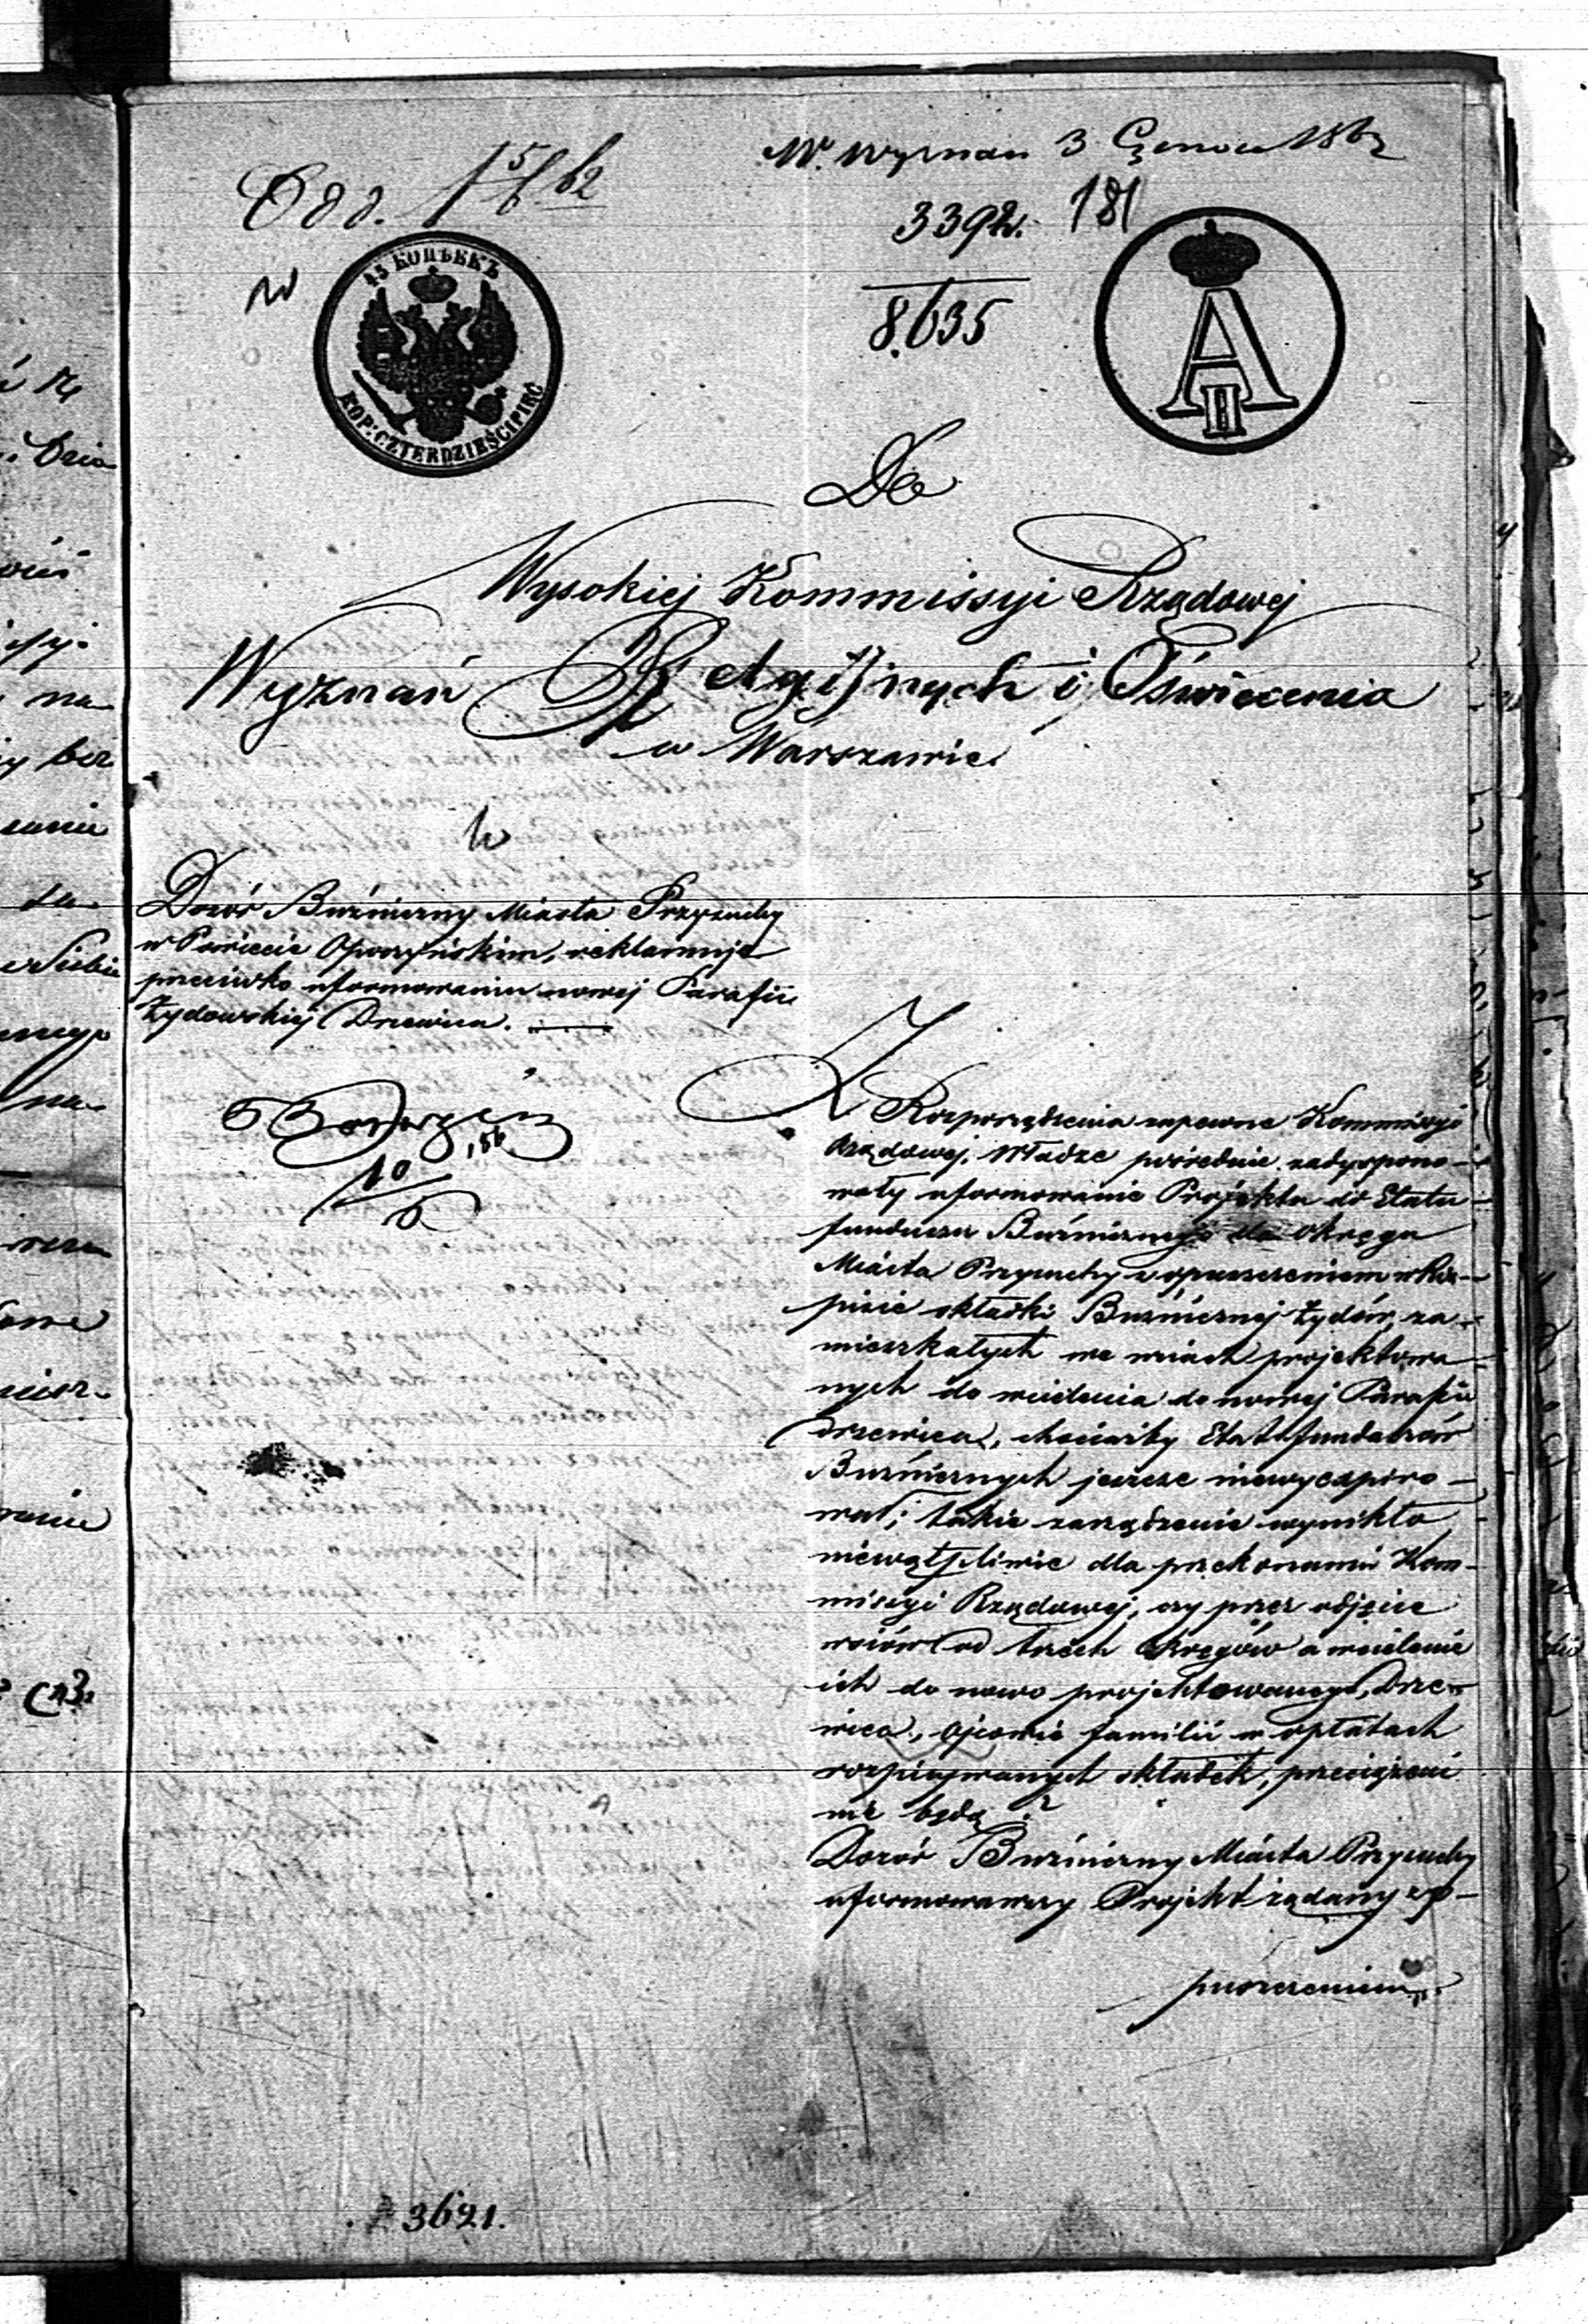 W. Wyznań 3 Czerwca 1862
Odd. 1 5/6 62
3392. 181
8.635
45 КОПѢЕКЪ
KOP: CZTERDZIEŚCI PIĘĆ
A II
Do
Wysokiej Kommissyi Rządowej
Wyznań Religijnych i Oświecenia
w Warszawie.
Dozór Bużniczny Miasta Przysuchy
w Powiecie Opoczyńskim, reklamuje
przeciwko uformowaniu nowej Parafii
Żydowskiej Drzewica.
10
6
Z Rozporządzenia zapewne Kommissyi
Rządowej, Władze pośrednie zadyspono-
wały uformowanie Projektu do Etatu
funduszu Bużnicznego dla Okręgu
Miasta Przysuchy z opuszczeniem w Roz-
pisie składki Bużnicznej Żydów, za-
mieszkałych we wsiach projektowa
nych do wcielenia do nowej Parafii
Drzewica, chociażby Etat funduszów
Bużnicznych jeszcze niewyexpiro-
wał; takie zarządzenie wynikło
niewątpliwie dla przekonania Kom-
missyi Rządowej, czy przez odjęcie
wsiów od trzech Okręgów a wcielenie
ich do nowo projektowanego, Drze-
wica, Ojcowie familii w opłatach
rozpisywanych składek, przeciążeni
nie będą?
Dozór Bużniczny Miasta Przysuchy
uformowawszy Projekt żądany z o-
puszczeniem
3621.